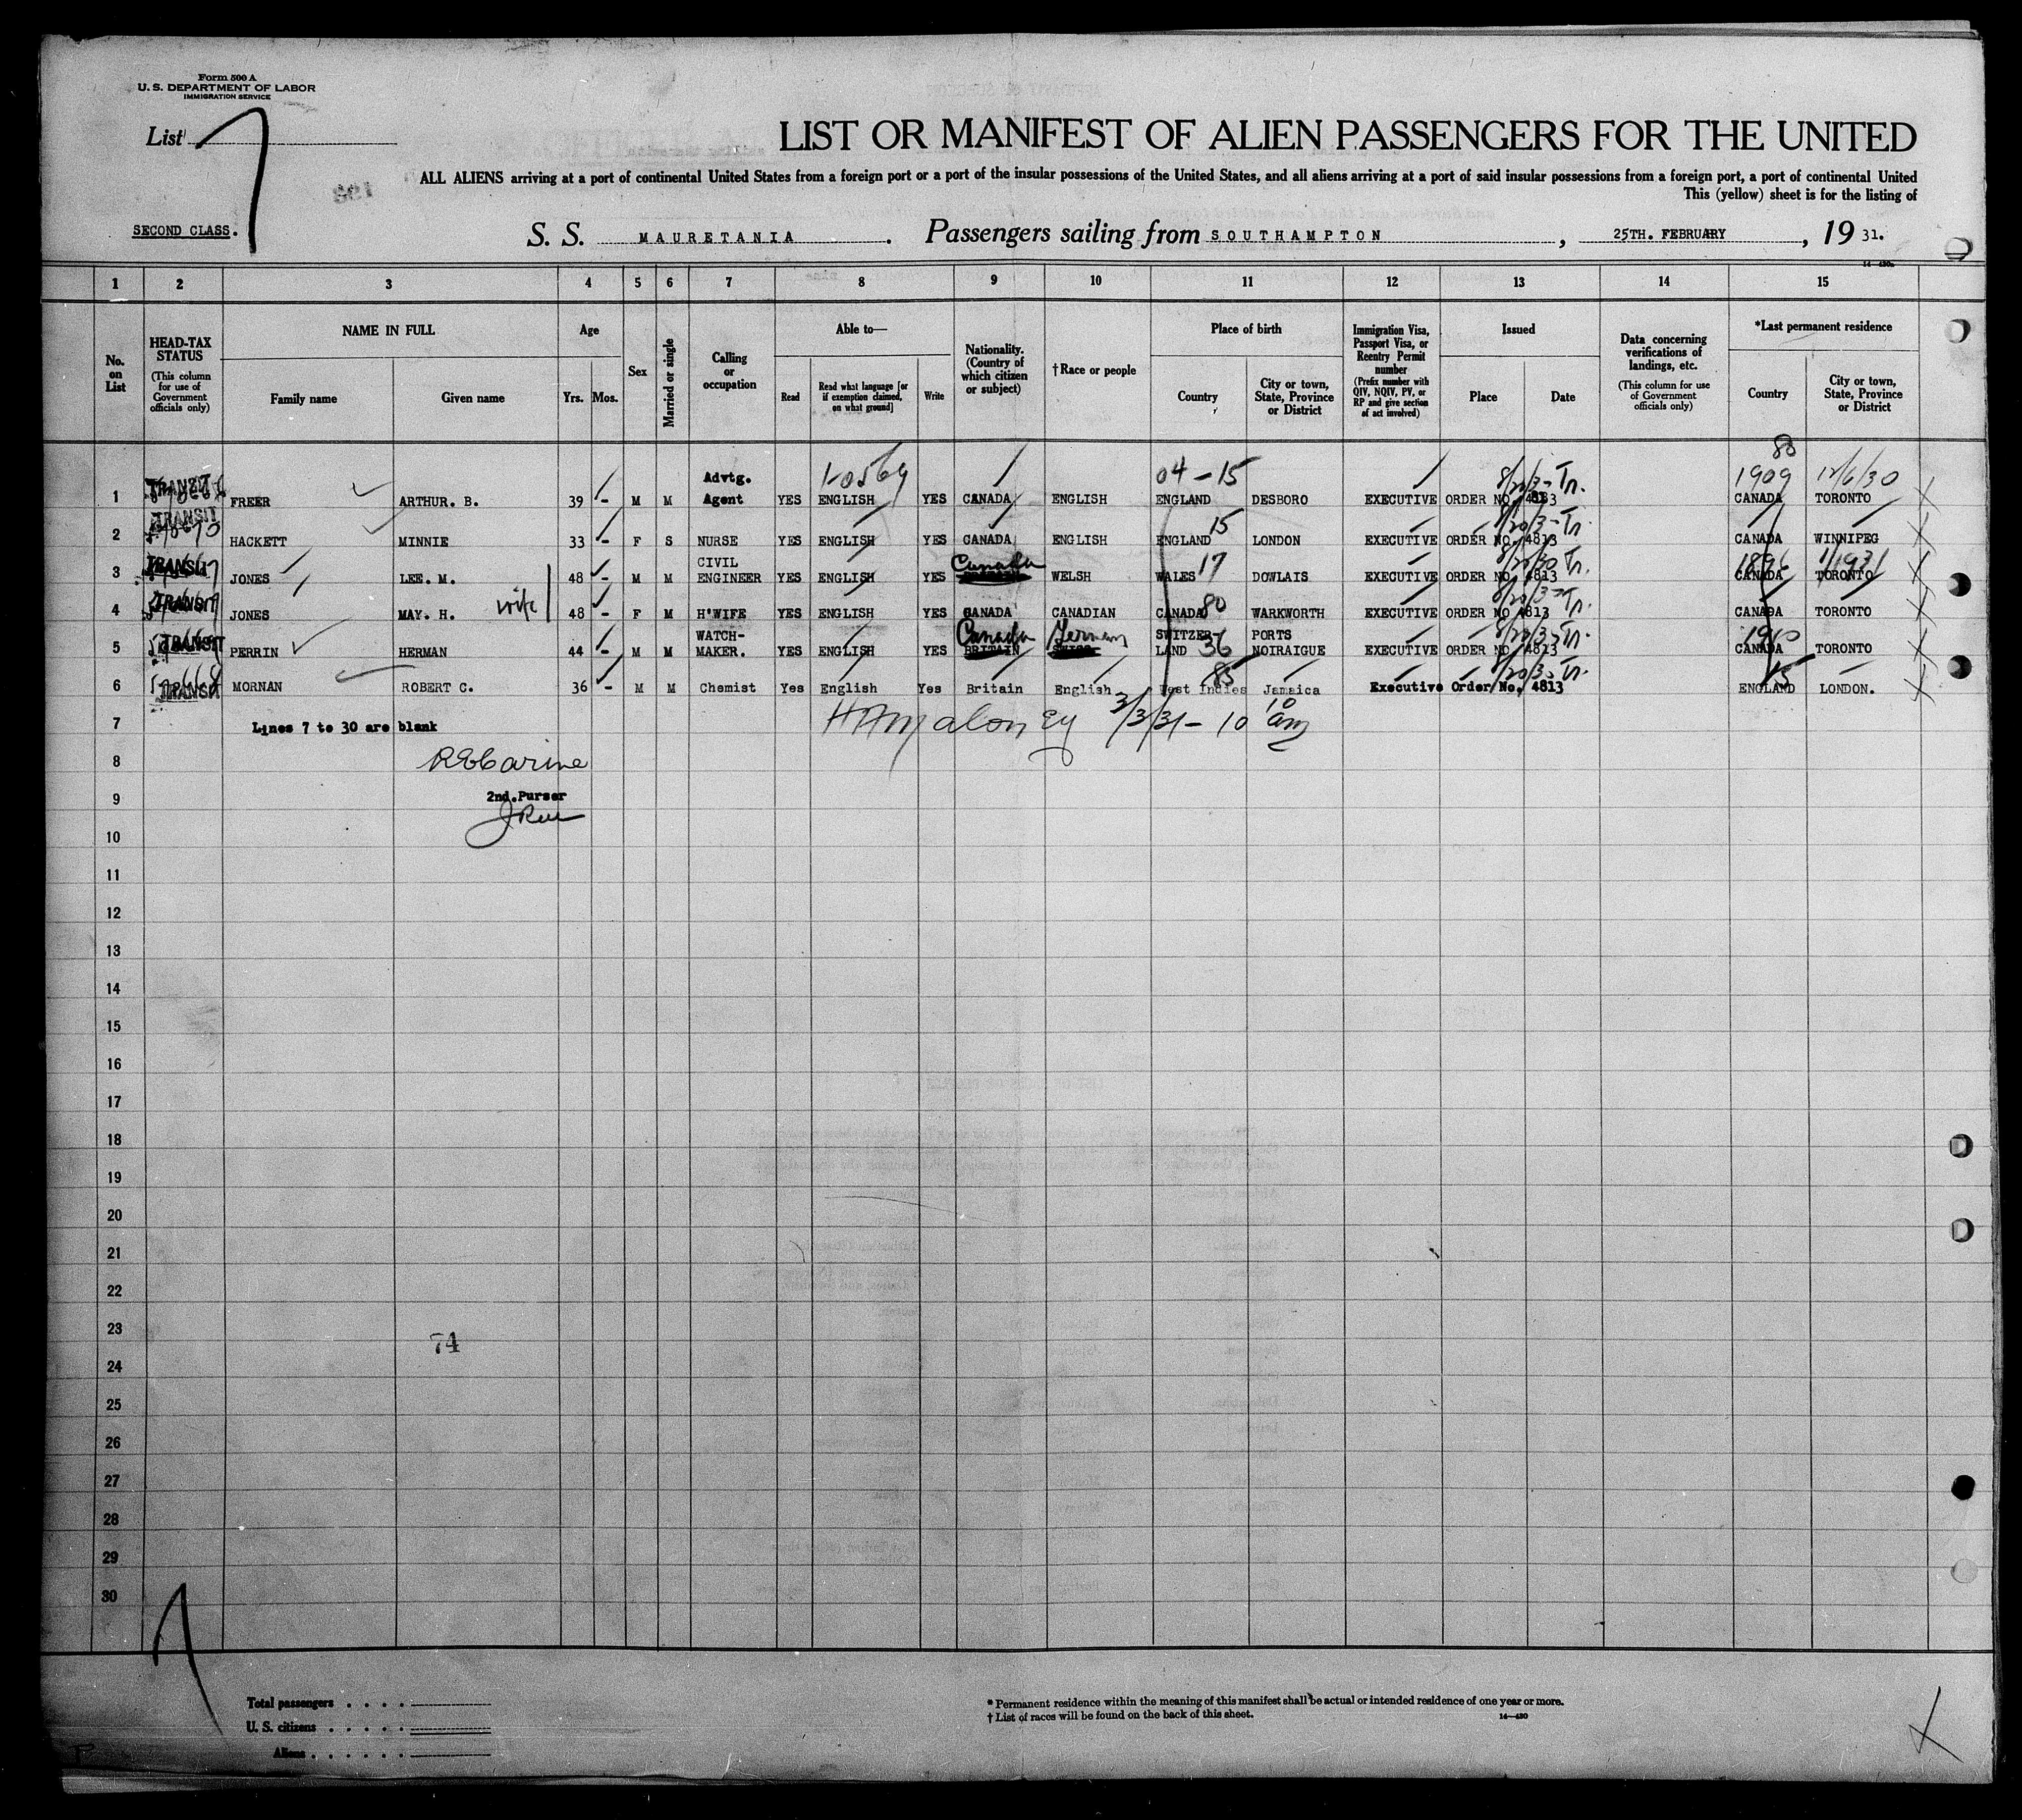 Form 500 A
U. S. DEPARTMENT OF LABOR
IMMIGRATION SERVICE
List 7
LIST OR MANIFEST OF ALIEN PASSENGERS FOR THE UNITED
ALL ALIENS arriving at a port of continental United States from a foreign port or a port of the insular possessions of the United States, and all aliens arriving at a port of said insular possessions from a foreign port, a port of continental United
This (yellow) sheet is for the listing of
SECOND CLASS.
S. S. MAURETANIA. Passengers sailing from SOUTHAMPTON, 25TH. FEBRUARY, 19 31.
1 2 3 4 5 6 7 8 9 10 11 12 13 14 15
No. on List
HEAD-TAX STATUS (This column for use of Government officials only)
NAME IN FULL
Family name
Given name
Age
Yrs. Mos.
Sex
Married or single
Calling or occupation
Able to—
Read
Read what language [or if exemption claimed, on what ground]
Write
Nationality. (Country of which citizen or subject)
†Race or people
Place of birth
Country
City or town, State, Province or District
Immigration Visa, Passport Visa, or Reentry Permit number (Prefix number with QIV, NQIV, PV, or RP and give section of act involved)
Issued
Place
Date
Data concerning verifications of landings, etc. (This column for use of Government officials only)
*Last permanent residence
Country
City or town, State, Province or District
80
04-15 1909 12/6/30
1 TRANSIT FREER ARTHUR. B. 39 - M M Advtg. Agent YES ENGLISH YES CANADA ENGLISH ENGLAND DESBORO EXECUTIVE ORDER NO. 4813 CANADA TORONTO
15
2 TRANSIT HACKETT MINNIE 33 - F S NURSE YES ENGLISH YES CANADA ENGLISH ENGLAND LONDON EXECUTIVE ORDER NO. 4813 CANADA WINNIPEG
Canada 17 1896 1/1931
3 TRANSIT JONES LEE. M. 48 - M M CIVIL ENGINEER YES ENGLISH YES WELSH WALES DOWLAIS EXECUTIVE ORDER NO 4813 CANADA TORONTO
4 TRANSIT JONES MAY. H. wife 48 - F M H'WIFE YES ENGLISH YES CANADA CANADIAN CANADA 80 WARKWORTH EXECUTIVE ORDER NO 4813 CANADA TORONTO
Canada German 1910
5 TRANSIT PERRIN HERMAN 44 - M M WATCH-MAKER. YES ENGLISH YES BRITAIN SWISS SWITZER-LAND 36 PORTS NOIRAIGUE EXECUTIVE ORDER NO 4813 CANADA TORONTO
85 15
6 TRANSIT MORNAN ROBERT C. 36 - M M Chemist Yes English Yes Britain English West Indies Jamaica Executive Order No. 4813 ENGLAND LONDON.
7 Lines 7 to 30 are blank
3/3/31 - 10 10 am
8
9 2nd. Purser
10
11
12
13
14
15
16
17
18
19
20
21
22
23
74
24
25
26
27
28
29
30
Total passengers . . . .
U. S. citizens . . . . .
Aliens . . . . . .
* Permanent residence within the meaning of this manifest shall be actual or intended residence of one year or more.
† List of races will be found on the back of this sheet. 14—430